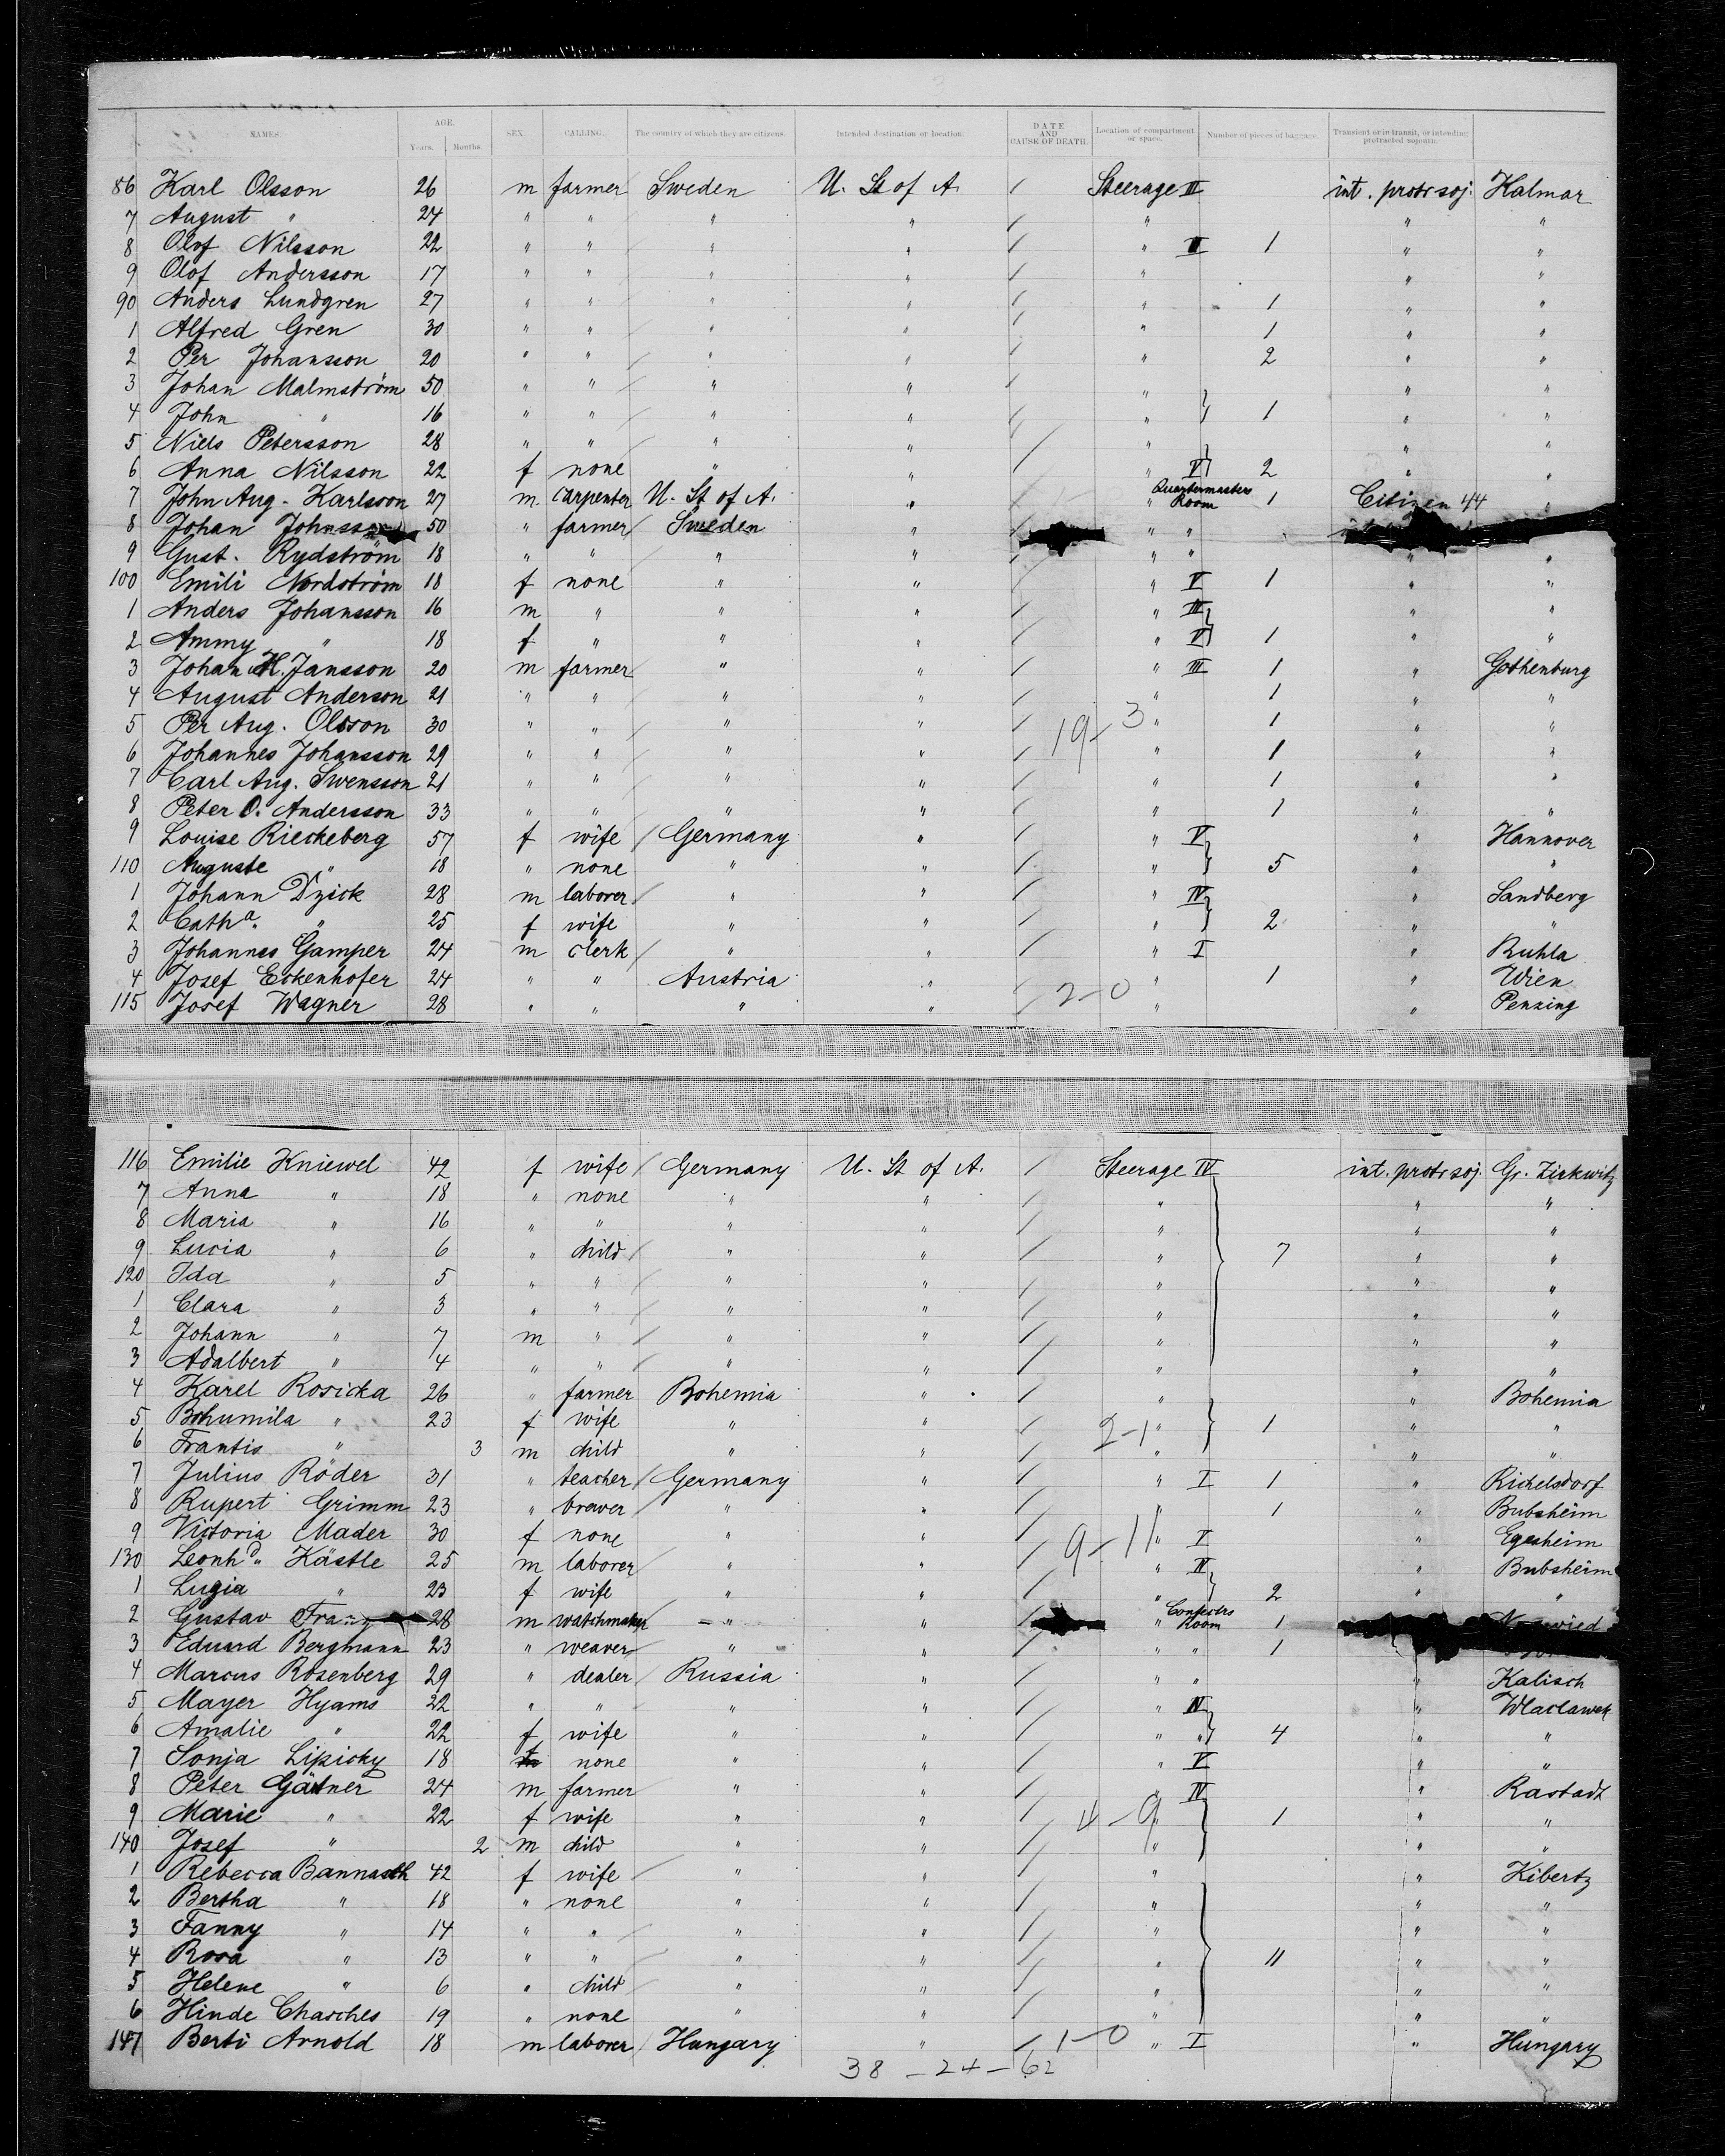 NAMES. AGE. Years. Months. SEX. CALLING. The country of which they are citizens. Intended destination or location. DATE AND CAUSE OF DEATH. Location of compartment or space. Number of pieces of baggage. Transient or in transit, or intending protracted sojourn.
86 Karl Olsson 26 m farmer Sweden U. St of A. / Steerage III int. protr soj. Kalmar
7 August " 24 " " " " / " " "
8 Olof Nilsson 22 " " " " / " III 1 " "
9 Olof Andersson 17 " " " " / " " "
90 Anders Lundgren 27 " " " " / " 1 " "
1 Alfred Gren 30 " " " " / " 1 " "
2 Per Johansson 20 " " " " / " 2 " "
3 Johan Malmström 50 " " " " / " " "
4 John " 16 " " " " / " 1 " "
5 Niels Petersson 28 " " " " / " " "
6 Anna Nilsson 22 f none " " / " V 2 " "
7 John Aug. Karlsson 27 m. carpenter U. St of A. " / " Quartermasters Room 1 Citizen 44 "
8 Johan 50 " farmer Sweden " " "
9 Gust. Rydström 18 " " " " / " " " "
100 Emili Nordström 18 f none " " / " V 1 " "
1 Anders Johansson 16 m " " " / " III " "
2 Ammy " 18 f " " " / " V 1 " "
3 Johan H. Jansson 20 m farmer " " / " III 1 " Gothenburg
4 August Anderson 21 " " " " / " 1 " "
5 Per Aug. Olsson 30 " " " " / 19-3 " 1 " "
6 Johannes Johansson 29 " " " " / " 1 " "
7 Carl Aug. Swensson 21 " " " " / " 1 " "
8 Peter O. Andersson 33 " " " " / " 1 " "
9 Louise Riecheberg 57 f wife / Germany " / " V " Hannover
110 Auguste " 18 " none " " / " 5 " "
1 Johann Dzick 28 m laborer / " " / " IV " Sandberg
2 Cath a. " 25 f wife " " / " 2 " "
3 Johannes Gamper 24 m clerk / " " / " I " Ruhla
4 Josef Eckenhofer 24 " " Austria " / " 1 " Wien
115 Josef Wagner 28 " " " " / 2-0 " " Penzing
116 Emilie Kniewel 42 f wife / Germany U. St of A. / Steerage IV int. protr soj. Gr. Zirkwitz
7 Anna " 18 " none " " / " " "
8 Maria " 16 " " " " / " " "
9 Lucia " 6 " child / " " / " 7 " "
120 Ida " 5 " " / " " / " " "
1 Clara " 3 " " / " " / " " "
2 Johann " 7 m " / " " / " " "
3 Adalbert " 4 " " / " " / " " "
4 Karel Rosicka 26 " farmer Bohemia " / " " Bohemia
5 Bohumila " 23 f wife " " / 2-1 " 1 " "
6 Frantis " 3 m child " " / " " "
7 Julius Röder 31 " teacher / Germany " / " I 1 " Richelsdorf
8 Rupert Grimm 23 " brewer / " " / " 1 " Bubsheim
9 Victoria Mader 30 f none " " / 9-11 " V " Egesheim
130 Leonh d. Kästle 25 m laborer / " " / " IV " Bubsheim
1 Lugia " 23 f wife " " / " 2 " "
2 Gustav 28 m watchmaker - " " / " Room 1
3 Eduard Bergmann 23 " weaver / " " / " " 1
4 Marcus Rosenberg 29 " dealer / Russia " / " " " Kalisch
5 Mayer Hyams 22 " " " " / " IV " Wlaclawek
6 Amalie " 22 f wife " " / " " 4 " "
7 Sonja Lipicky 18 f none " " / " V " "
8 Peter Gärtner 24 m farmer " " / " IV " Rastadt
9 Marie " 22 f wife " " / 4-9 " 1 " "
140 Josef " 2 m child " " / " " "
1 Rebecca Bannasch 42 f wife / " " / " " Kibertz
2 Bertha " 18 " none " " / " " "
3 Fanny " 14 " " / " " / " " "
4 Rosa " 13 " " / " " / " 11 " "
5 Helene " 6 " child / " " / " " "
6 Hinde Charches 19 " none " " / " " "
147 Berti Arnold 18 m laborer / Hungary " / 1-0 " I " Hungary
38 - 24 - 62